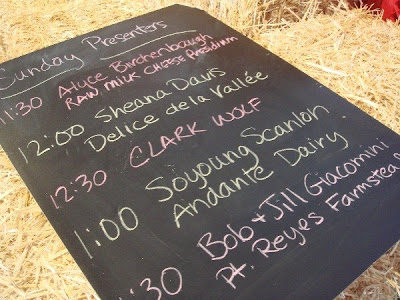 Sunday Presenters
11:30 Alyce Birchenbough
RAW MILK CHEESE Presidium
12:00 Sheana Davis
Delice de la Vallée
12:30 CLARK WOLF
1:00 Soyoung Scanlon
Andante Dairy
:30 Bob & Jill Giacomini
Pt. Reyes Farmstea